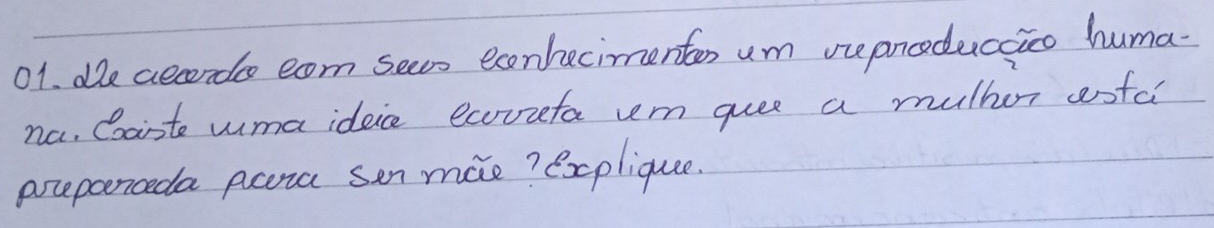 01. De acordo com seus conhecimentos em reproducção huma-
na. Existe uma ideia correta em que a mulher está
preparada para ser mãe? Explique.